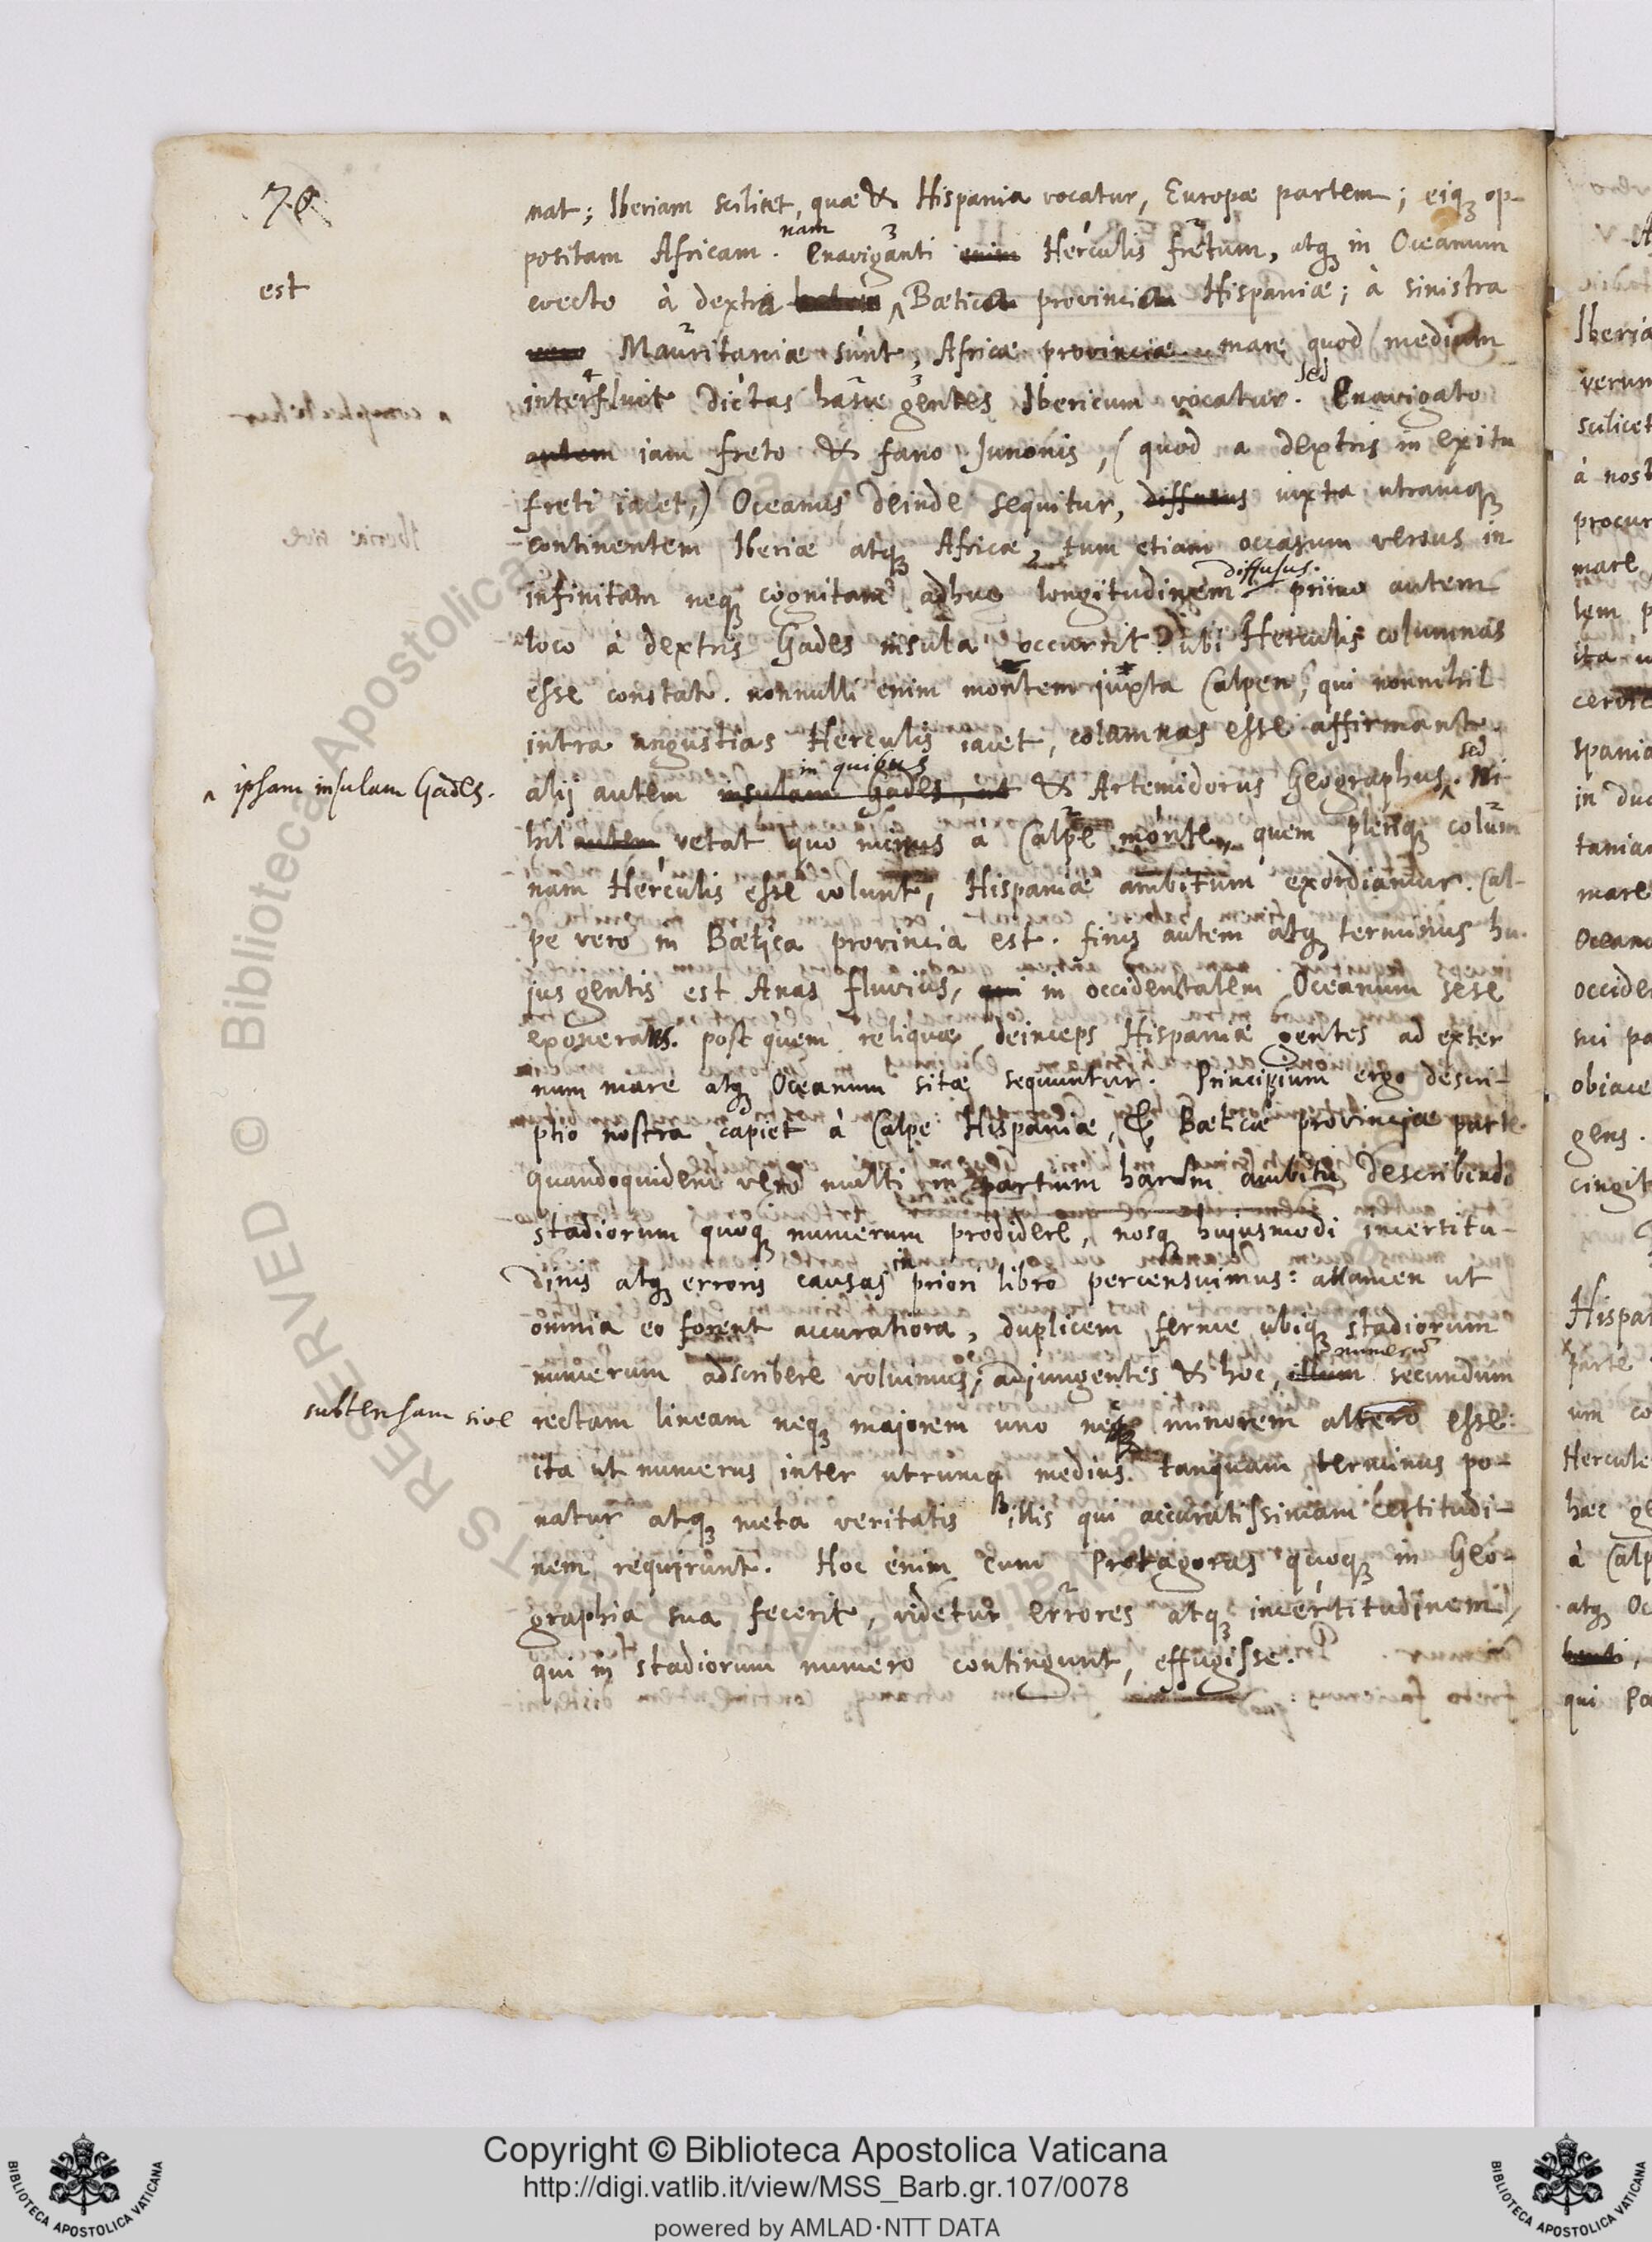 70
nat; Iberiam scilicet, quæ & Hispania vocatur, Europæ partem; eiqꝫ op-
nam
positam Africam. Enaviganti enim Herculis fretum, atqꝫ in Oceanum
est
evecto à dextra ‸ Bætica provincia Hispaniæ; à sinistra
vero Mauritaniæ sunt, Africæ provinciæ. mare quod medium
sed
interfluit dictas hasce gentes Ibericum vocatur. Enavigato
autem iam freto & fano Junonis, (quod a dextris in exitu
freti iacet,) Oceanus deinde sequitur, diffusus iuxta utramqꝫ
continentem Iberiæ atqꝫ Africæ, tum etiam occasum versus in
diffusus.
infinitam neqꝫ cognitam adhuc longitudinem primo autem
loco à dextris Gades insula occurrit ubi Herculis columnas
esse constat. nonnulli enim montem juxta Calpen, qui nonnihil
intra angustias Herculis iacet, columnas esse affirmant
in quibus
sed
‸ ipsam insulam Gades.
alij autem insulam Gades, ut & Artemidorus Geographus‸. Ni-
hil autem vetat quo minus à Calpe monte, quem pleriqꝫ colum
nam Herculis esse volunt, Hispaniæ ambitum exordiamur. Cal-
pe vero in Bætica provincia est. finis autem atqꝫ terminus hu-
jus gentis est Anas fluvius, qui in occidentalem Oceanum sese
exonerans. post quem reliquæ deinceps Hispaniæ gentes ad exter
num mare atqꝫ Oceanum sitæ sequuntur. Principium ergo descri-
ptio nostra capiet à Calpe Hispaniæ, & Bæticæ provinciæ parte.
Quandoquidem vero multi in partium harum ambitu describendo
stadiorum quoqꝫ numerum prodidere, nosqꝫ hujusmodi incertitu-
in
dinis atqꝫ erroris causas priori libro percensuimus: attamen ut
omnia eo forent accuratiora, duplicem ferme ubiqꝫ stadiorum
numerum
numerum adscribere voluimus; adjungentes & hoc, illum secundum
subtensam sive
rectam lineam neqꝫ majorem uno neqꝫ minorem altero esse:
ita ut numerus inter utrumqꝫ medius tanquam terminus po-
natur atqꝫ meta veritatis illis qui accuratissimam certitudi-
nem requirunt. Hoc enim cum Protagoras quoqꝫ in Geo-
graphia sua fecerit, videtur errores atqꝫ incertitudinem,
qui in stadiorum numero contingunt, effugisse.
Copyright © Biblioteca Apostolica Vaticana
http://digi.vatlib.it/view/MSS_Barb.gr.107/0078
powered by AMLAD·NTT DATA